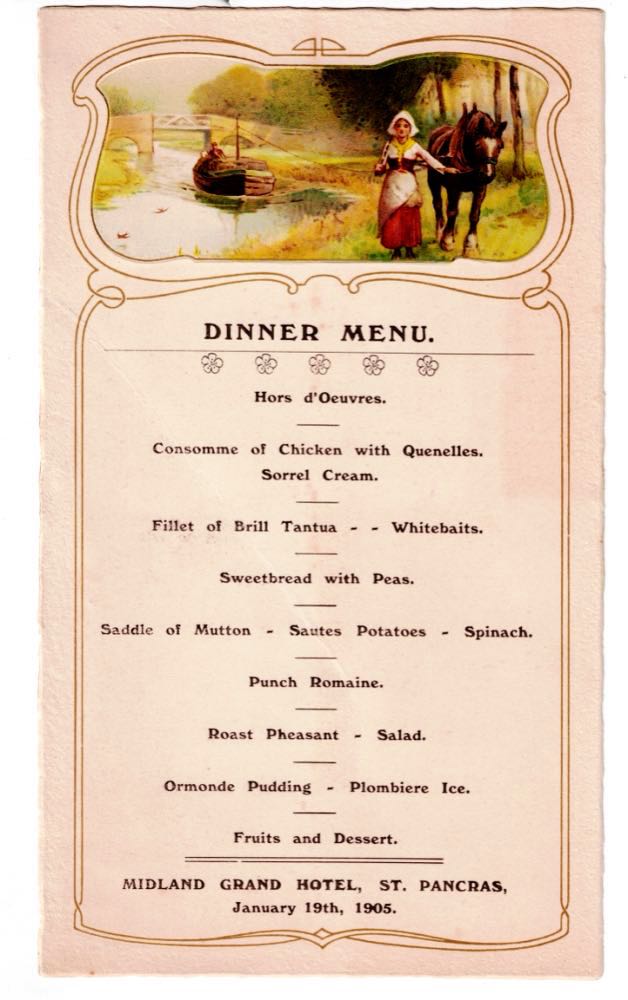 DINNER MENU.
Hors d'Oeuvres.
Consomme of Chicken with Quenelles.
Sorrel Cream.
Fillet of Brill Tantua - - Whitebaits.
Sweetbread with Peas.
Saddle of Mutton - Sautes Potatoes - Spinach.
Punch Romaine.
Roast Pheasant - Salad.
Ormonde Pudding - Plombiere Ice.
Fruits and Dessert.
MIDLAND GRAND HOTEL, ST. PANCRAS,
January 19th, 1905.